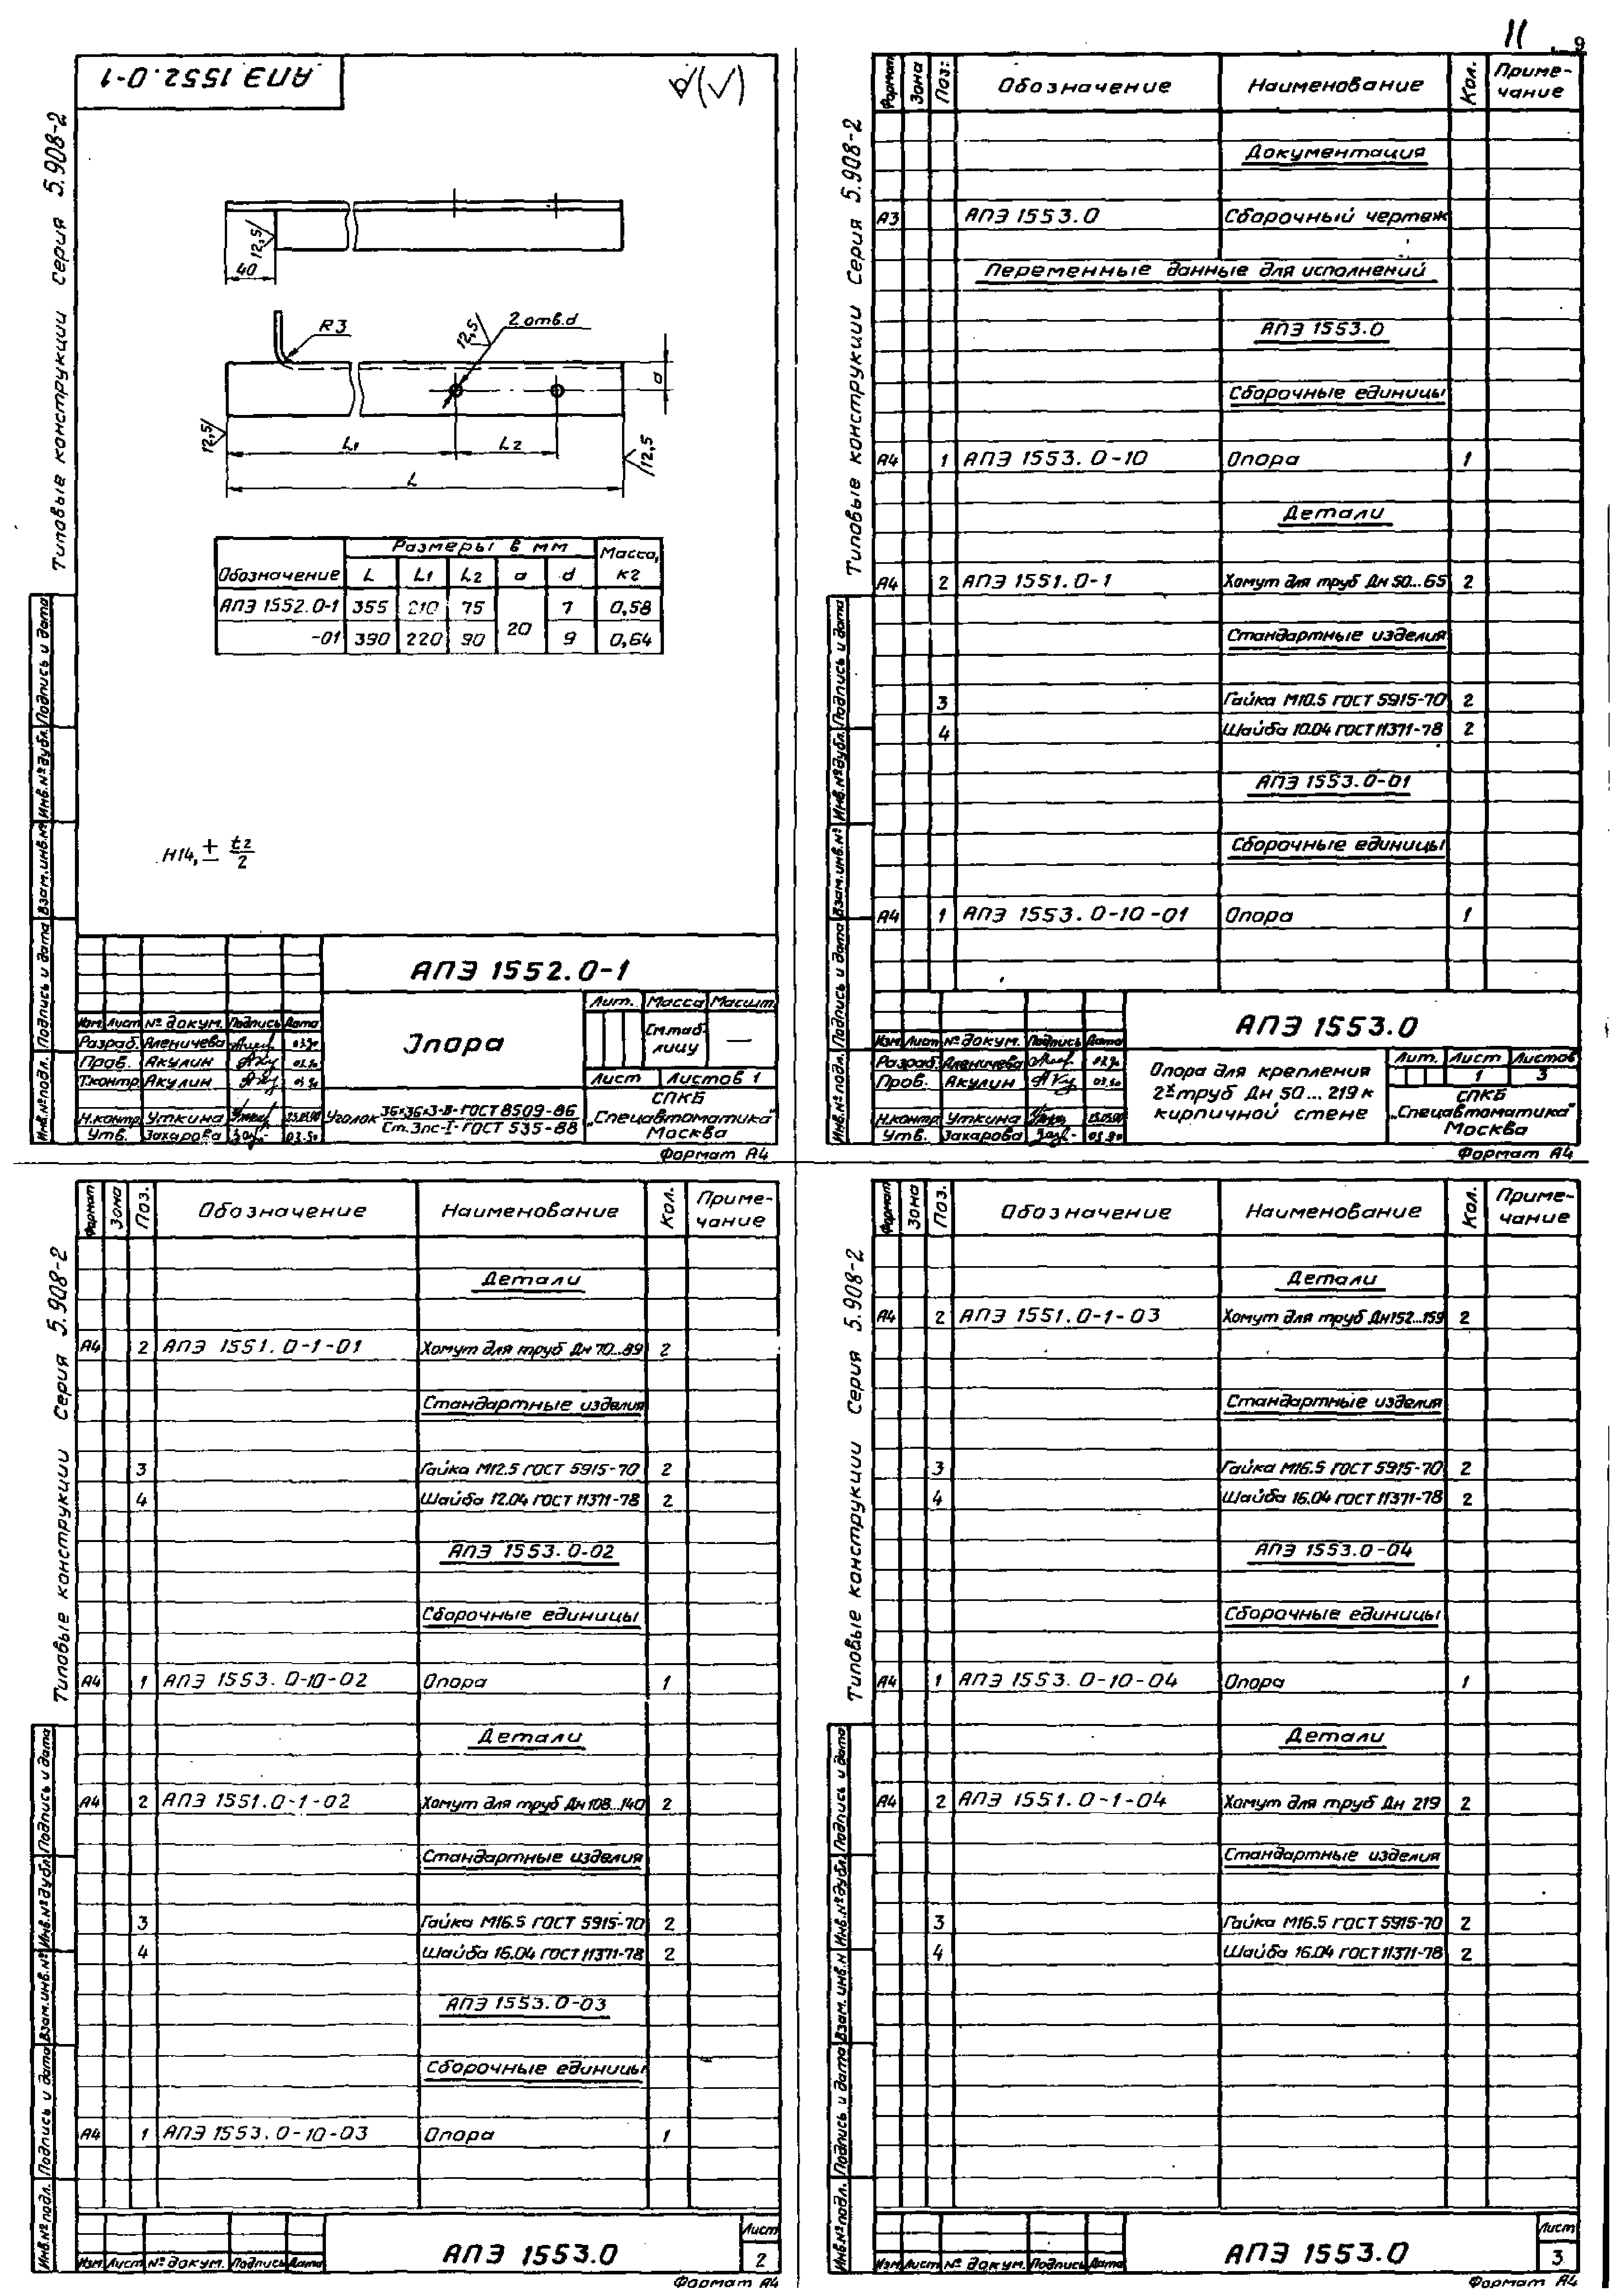 11
9
АПЭ 1552.0-1
Типовые конструкции Серия 5.908-2
(√)
12,5
40
R3
12,5
2 отв. d
а
12,5
L1
L2
12,5
L
Размеры в мм
Масса, кг
Обозначение L L1 L2 а d
АПЭ 1552.0-1 355 210 75 20 7 0,58
-01 390 220 90 9 0,64
H14, ± t2/2
Инв.№ подл. Подпись и дата Взам.инв.№ Инв.№ дубл. Подпись и дата
АПЭ 1552.0-1
Изм. Лист № докум. Подпись Дата
Разраб. Аленичева 03.90
Пров. Акулин 03.90
Т.контр. Акулин 03.90
Н.контр. Уткина
Утв. Захарова 03.90
Опора
Лит. Масса Масшт.
См. таблицу —
Лист Листов 1
Уголок 36×36×3-В-ГОСТ 8509-86
Ст.3пс-I-ГОСТ 535-88
СПКБ
„Спецавтоматика"
Москва
Формат А4
Типовые конструкции Серия 5.908-2
Формат Зона Поз. Обозначение Наименование Кол. Примечание
Документация
А3 АПЭ 1553.0 Сборочный чертеж
Переменные данные для исполнений
АПЭ 1553.0
Сборочные единицы
А4 1 АПЭ 1553.0-10 Опора 1
Детали
А4 2 АПЭ 1551.0-1 Хомут для труб Дн 50...65 2
Стандартные изделия
3 Гайка М10.5 ГОСТ 5915-70 2
4 Шайба 10.04 ГОСТ 11371-78 2
АПЭ 1553.0-01
Сборочные единицы
А4 1 АПЭ 1553.0-10-01 Опора 1
Инв.№ подл. Подпись и дата Взам.инв.№ Инв.№ дубл. Подпись и дата
АПЭ 1553.0
Изм. Лист № докум. Подпись Дата
Разраб. Аленичева 03.90
Пров. Акулин 03.90
Н.контр. Уткина
Утв. Захарова 03.90
Опора для крепления
2х труб Дн 50...219 к
кирпичной стене
Лит. Лист Листов
1 3
СПКБ
„Спецавтоматика"
Москва
Формат А4
Типовые конструкции Серия 5.908-2
Формат Зона Поз. Обозначение Наименование Кол. Примечание
Детали
А4 2 АПЭ 1551.0-1-01 Хомут для труб Дн 70...89 2
Стандартные изделия
3 Гайка М12.5 ГОСТ 5915-70 2
4 Шайба 12.04 ГОСТ 11371-78 2
АПЭ 1553.0-02
Сборочные единицы
А4 1 АПЭ 1553.0-10-02 Опора 1
Детали
А4 2 АПЭ 1551.0-1-02 Хомут для труб Дн 108...140 2
Стандартные изделия
3 Гайка М16.5 ГОСТ 5915-70 2
4 Шайба 16.04 ГОСТ 11371-78 2
АПЭ 1553.0-03
Сборочные единицы
А4 1 АПЭ 1553.0-10-03 Опора 1
Инв.№ подл. Подпись и дата Взам.инв.№ Инв.№ дубл. Подпись и дата
Изм. Лист № докум. Подпись Дата
АПЭ 1553.0
Лист
2
Формат А4
Типовые конструкции Серия 5.908-2
Формат Зона Поз. Обозначение Наименование Кол. Примечание
Детали
А4 2 АПЭ 1551.0-1-03 Хомут для труб Дн 152...159 2
Стандартные изделия
3 Гайка М16.5 ГОСТ 5915-70 2
4 Шайба 16.04 ГОСТ 11371-78 2
АПЭ 1553.0-04
Сборочные единицы
А4 1 АПЭ 1553.0-10-04 Опора 1
Детали
А4 2 АПЭ 1551.0-1-04 Хомут для труб Дн 219 2
Стандартные изделия
3 Гайка М16.5 ГОСТ 5915-70 2
4 Шайба 16.04 ГОСТ 11371-78 2
Инв.№ подл. Подпись и дата Взам.инв.№ Инв.№ дубл. Подпись и дата
Изм. Лист № докум. Подпись Дата
АПЭ 1553.0
Лист
3
Формат А4